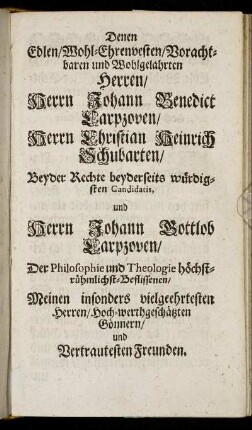 Denen
Edlen/Wohl-Ehrenvesten/Voracht-
baren und Wohlgelahrten
Herren/
Herrn Johann Benedict
Carpzoven/
Herrn Christian Heinrich
Schubarten/
Beyder Rechte beyderseits würdig-
sten Candidatis,
und
Herrn Johann Gottlob
Carpzoven/
Der Philosophie und Theologie höchst-
rühmlichst-Beflissenen/
Meinen insonders vielgeehrtesten
Herren/Hoch-werthgeschätzten
Gönnern/
und
Vertrautesten Freunden.